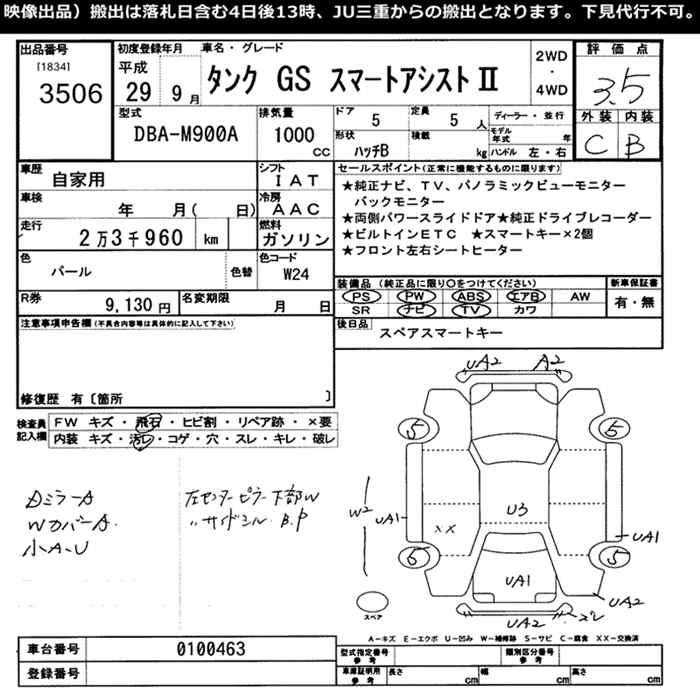 映像出品）搬出は落札日含む4日後13時、JU三重からの搬出となります。下見代行不可。
出品番号
[1834]
3506
初度登録年月
平成
29 9月
車名・グレード
タンク GS スマートアシストⅡ
2WD
・
4WD
評価点
3.5
外装 内装
C B
型式
DBA-M900A
排気量
1000
CC
ドア
5
定員
5 人
形状
ハッチB
積載
kg
ディーラー・並行
モデル年式 年
ハンドル 左・右
車歴
自家用
シフト
IAT
車検
年 月( 日)
冷房
AAC
走行
2万3千960 km
燃料
ガソリン
色
パール
色替
色コード
W24
R券
9,130円
名変期限
月 日
セールスポイント(正常に機能するものに限ります)
★純正ナビ、TV、パノラミックビューモニター
バックモニター
★両側パワースライドドア★純正ドライブレコーダー
★ビルトインETC ★スマートキー×2個
★フロント左右シートヒーター
装備品（純正品に限り○をつけてください）
PS PW ABS エアB AW
SR ナビ TV カワ
新車保証書
有・無
後日品
スペアスマートキー
注意事項申告欄(不具合内容等は具体的に記入して下さい)
修復歴 有〔箇所 〕
検査員
記入欄
FW キズ・飛石・ヒビ割・リペア跡・×要
内装 キズ・汚レ・コゲ・穴・スレ・キレ・破レ
DミラーA
WカバーA.
小A.U
左センターピラー下部W
〃サイドシル B.P
UA2 A2
5 5
W2
UA1
U3
XX
UA1
6 5
UA1
UA2
UA2
スペア
A－キズ E－エクボ U－凹み W－補修跡 S－サビ C－腐食 XX－交換済
車台番号
0100463
登録番号
型式指定番号
参考
類別区分番号
参考
車庫証明用
参考
長さ cm 幅 cm 高さ cm